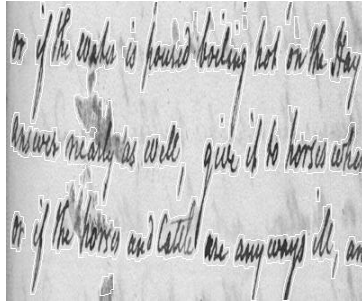 or if the water is poured boiling hot on the Hay
answer nearly as well, give it to horses when
or if the horses and Cattle are anyways ill, an